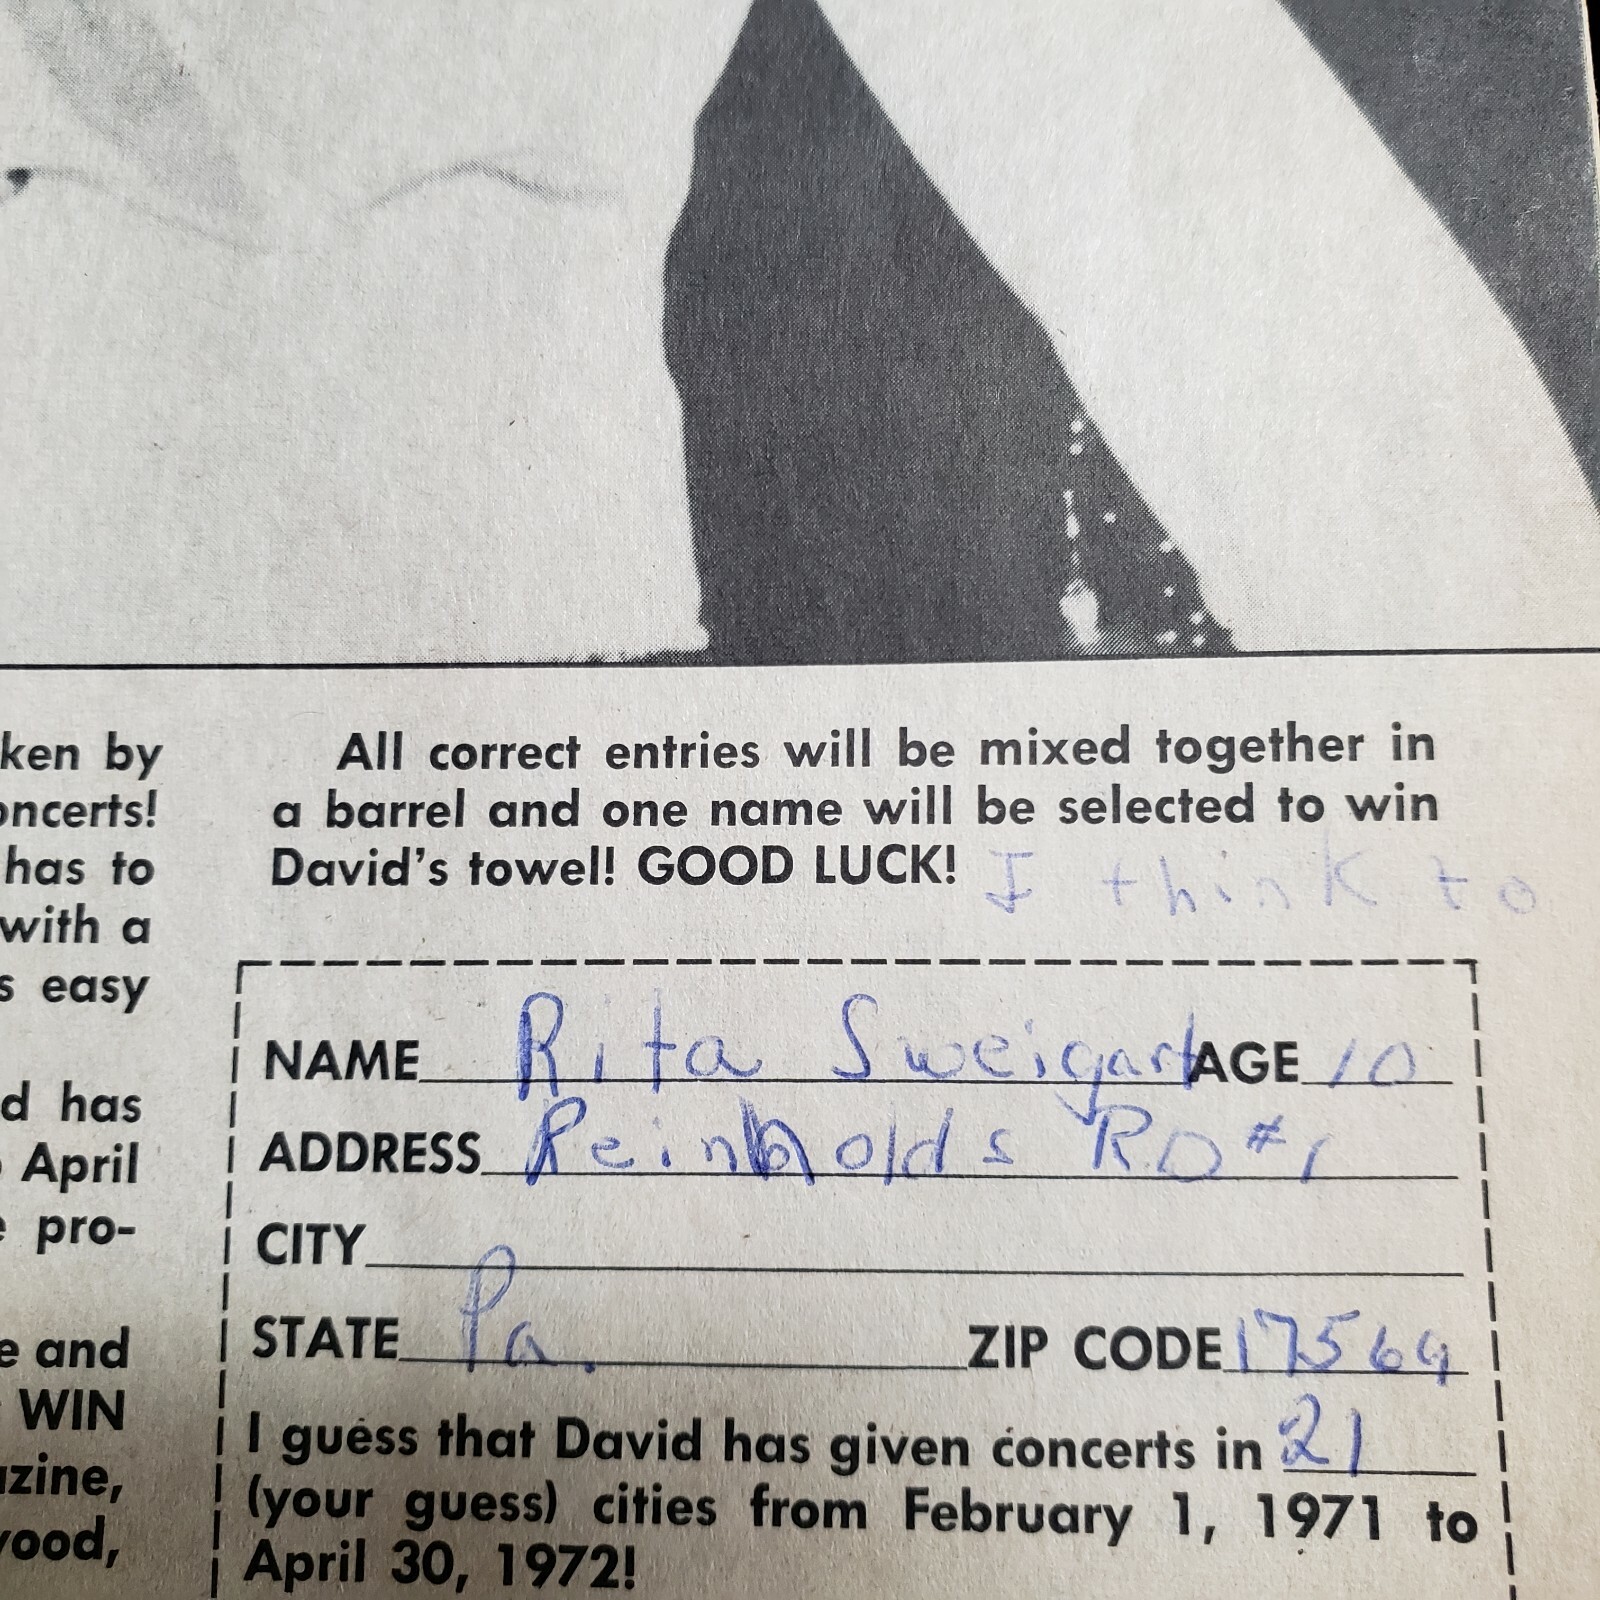 ken by
oncerts!
has to
with a
s easy
d has
April
pro-
e and
WIN
zine,
ood,
All correct entries will be mixed together in
a barrel and one name will be selected to win
David's towel! GOOD LUCK! I think to
NAME Rita Sweigart AGE 10
ADDRESS Reinholds RD #1
CITY
STATE Pa. ZIP CODE 17569
I guess that David has given concerts in 21
(your guess) cities from February 1, 1971 to
April 30, 1972!